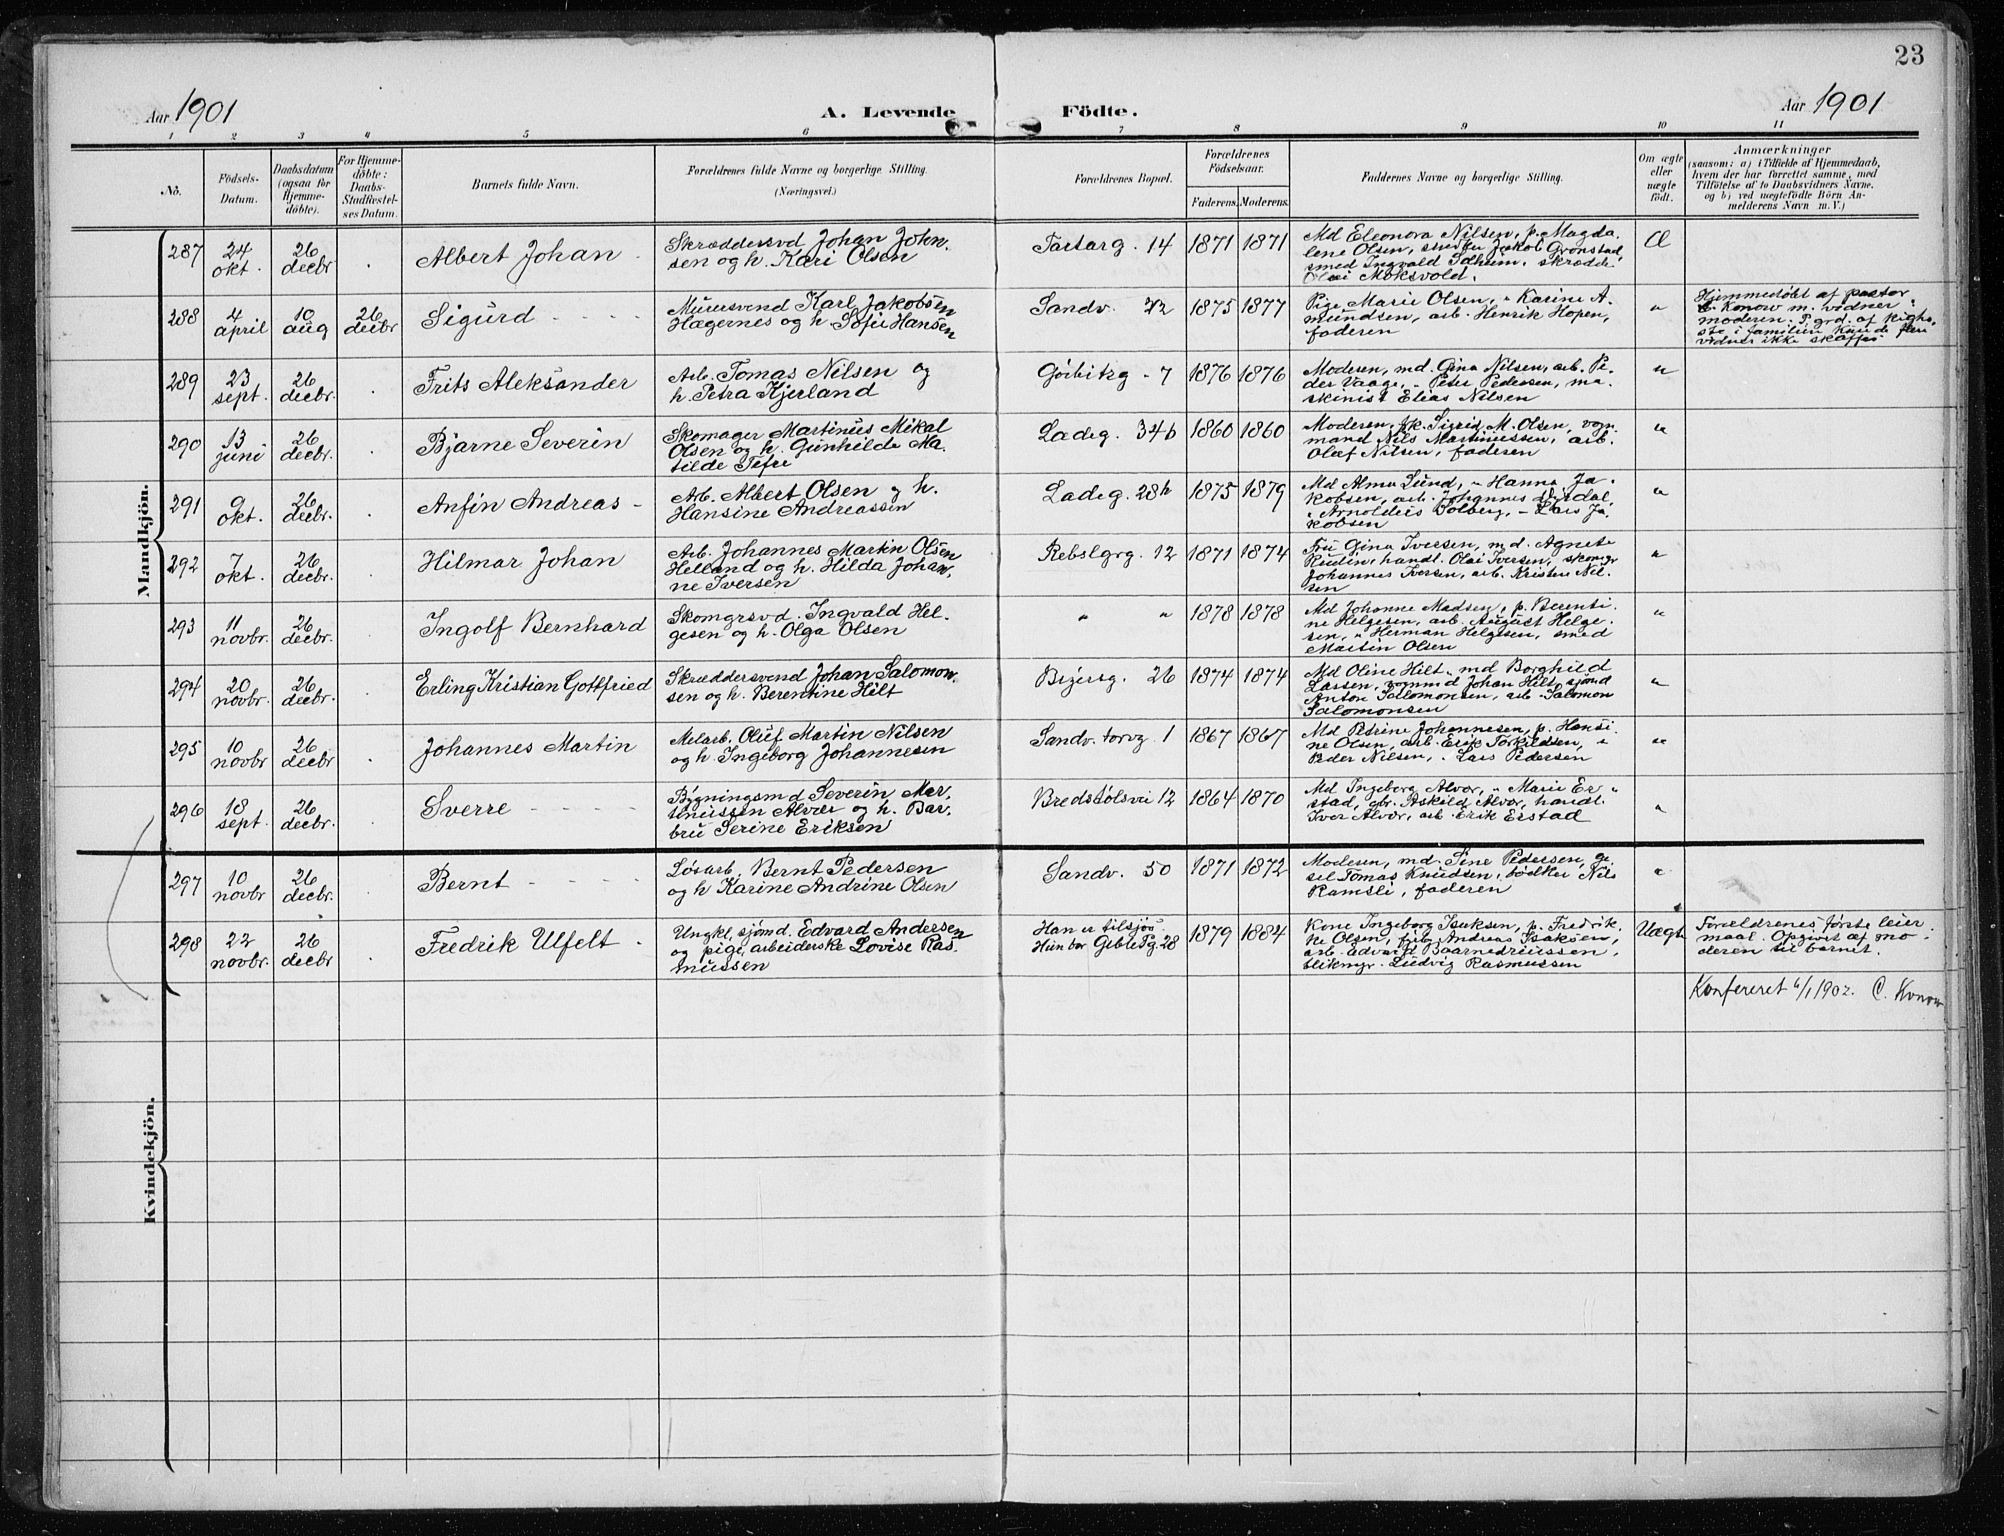 23
Aar 1901
A. Levende Födte.
Aar 1901
1 2 3 4 5 6 7 8 9 10 11
No.
Födsels-
Datum.
Daabsdatum
(ogsaa for
Hjemme-
döbte).
For Hjemme-
döbte:
Daabs-
Stadfæstel-
ses Datum.
Barnets fulde Navn.
Forældrenes fulde Navne og borgerlige Stilling.
(Næringsvei.)
Forældrenes Bopæl.
Forældrenes
Födselsaar.
Faderens. Moderens.
Faddernes Navne og borgerlige Stilling.
Om ægte
eller
uægte
födt.
Anmærkninger
(saasom: a) i Tilfælde af Hjemmedaab,
hvem der har forrettet samme, med
Tilföielse af to Daabsvidners Navne,
og b) ved uægtefödte Börn An-
melderens Navn m. V.)
Mandkjön.
287
24
okt.
26
decbr.
Albert Johan
Skræddersvd Johan John,
sen og h. Kari Olsen
Tartarg. 14
1871 1871
Md Eleonora Nilsen, p. Magda
lene Olsen, Jakob Grønstad,
smed Ingvald Solheim, skrædde
Olai Moksvold.
Æ
288
4
april
10
aug
26
decbr
Sigurd
Murersvend Karl Jakobsen
Hagernes og h. Sofie Hansen
Sandv. 72
1875 1877
Pige Marie Olsen, " Karine A-
mundsen, arb. Henrik Hopen,
faderen
"
Hjemmedøbt af pastor
C. Konow m. vidner
moderen. P. grd. af kigho-
ste i familien kunde flere
vidner ikke skaffes
289
23
sept.
26
decbr.
Frits Aleksander
Arb. Tomas Nilsen og
h. Petra Kjerland
Gørbitzg - 7
1876 1876
Moderen, md. Gina Nilsen, arb. Pe-
der Vaage, " Peter Pedersen, ma-
skinist Elias Nilsen
"
290
13
juni
26
decbr.
Bjarne Severin
Skomager Martinus Mikal
Olsen og h. Gunhilde Ma-
tilde Tefre
Ladeg. 34b
1860 1860
Moderen, frk. Sigrid M. Olsen, vogn-
mand Nils Martinussen, arb.
Olaf Nilsen, faderen
"
291
9
okt.
26
decbr.
Anfin Andreas
Arb. Albert Olsen og h.
Hansine Andreassen
Ladeg. 28h
1875 1879
Md Alma Lund, " Hanna Ja-
kobsen, arb. Johannes
" Arnoldus Solberg, - Lars Ja,
kobsen
"
292
7
okt.
26
decbr.
Hilmar Johan
Arb. Johannes Martin Olsen
Helland og h. Hilda Johan,
ne Iversen
Rebslgrg. 12
1871 1874
Fru Gina Iversen, md. Agnete
Rudin, handl. Olai Iversen, skomgr
Johannes Iversen, arb. Kristen Nil-
sen
"
293
11
novbr.
26
decbr.
Ingolf Bernhard
Skomgrsvd. Ingvald Hel-
gesen og h. Olga Olsen
" "
1878 1878
Md Johanne Madsen, p. Berenti-
ne Helgesen, arb. August Helge-
sen, " Herman Helgesen, smed
Martin Olsen
"
294
20
novbr.
26
decbr.
Erling Kristian Gottfried
Skræddersvend Johan Salomon,
sen og h. Berentine Hilt
Bøjersg. 26
1874 1874
Md Oline Hilt, md Borghild
Larsen, vognmd Johan Hilt, sjømd
Anton Salomonsen, arb. Salomon
Salomonsen
"
295
10
novbr
26
decbr
Johannes Martin
Melarb. Oluf Martin Nilsen
og h. Ingeborg Johannesen
Sandv. torvg 1
1867 1867
Md Petrine Johannesen, p. Hansi-
ne Olsen, arb. Erik Torkildsen, "
Peder Nilsen, " Lars Pedersen
"
296
18
sept.
26
decbr.
Sverre
Bygningsmd Severin Mar,
tinussen Alvær og h. Bar-
bru Serine Eriksen
Bredstølsvei 12
1864 1870
Md Ingeborg Alvær, " Marie Er-
stad, gbr. Askild Alvær, handl.
Iver Alvær, arb. Erik Erstad
"
297
10
novbr
26
decbr.
Bernt
Løsarb. Bernt Pedersen
og h Karine Andrine Olsen
Sandv. 50
1871 1872
Moderen, md. Sine Pedersen, ge-
sel Tomas Knudsen, bødker Nils
Ramsli, faderen
"
298
22
novbr.
26
decbr
Fredrik Ulfelt
Ungkl, sjømd. Edvard Andersen
og pige, arbeiderske Lovise Ras-
mussen
Han er tilsjøs
Hun bor Gible Pg. 28
1879 1884
Kone Ingeborg Isaksen, p. Fredrik-
ke Olsen, Andreas Isaksen,
arb. Edvard
blikmgr. Ludvig Rasmussen
Uægte
Forældrenes første leier-
maal. Opgivet af mo-
deren til barnet.
Konfereret 6/1 1902. C. Konow
Kvindekjön.